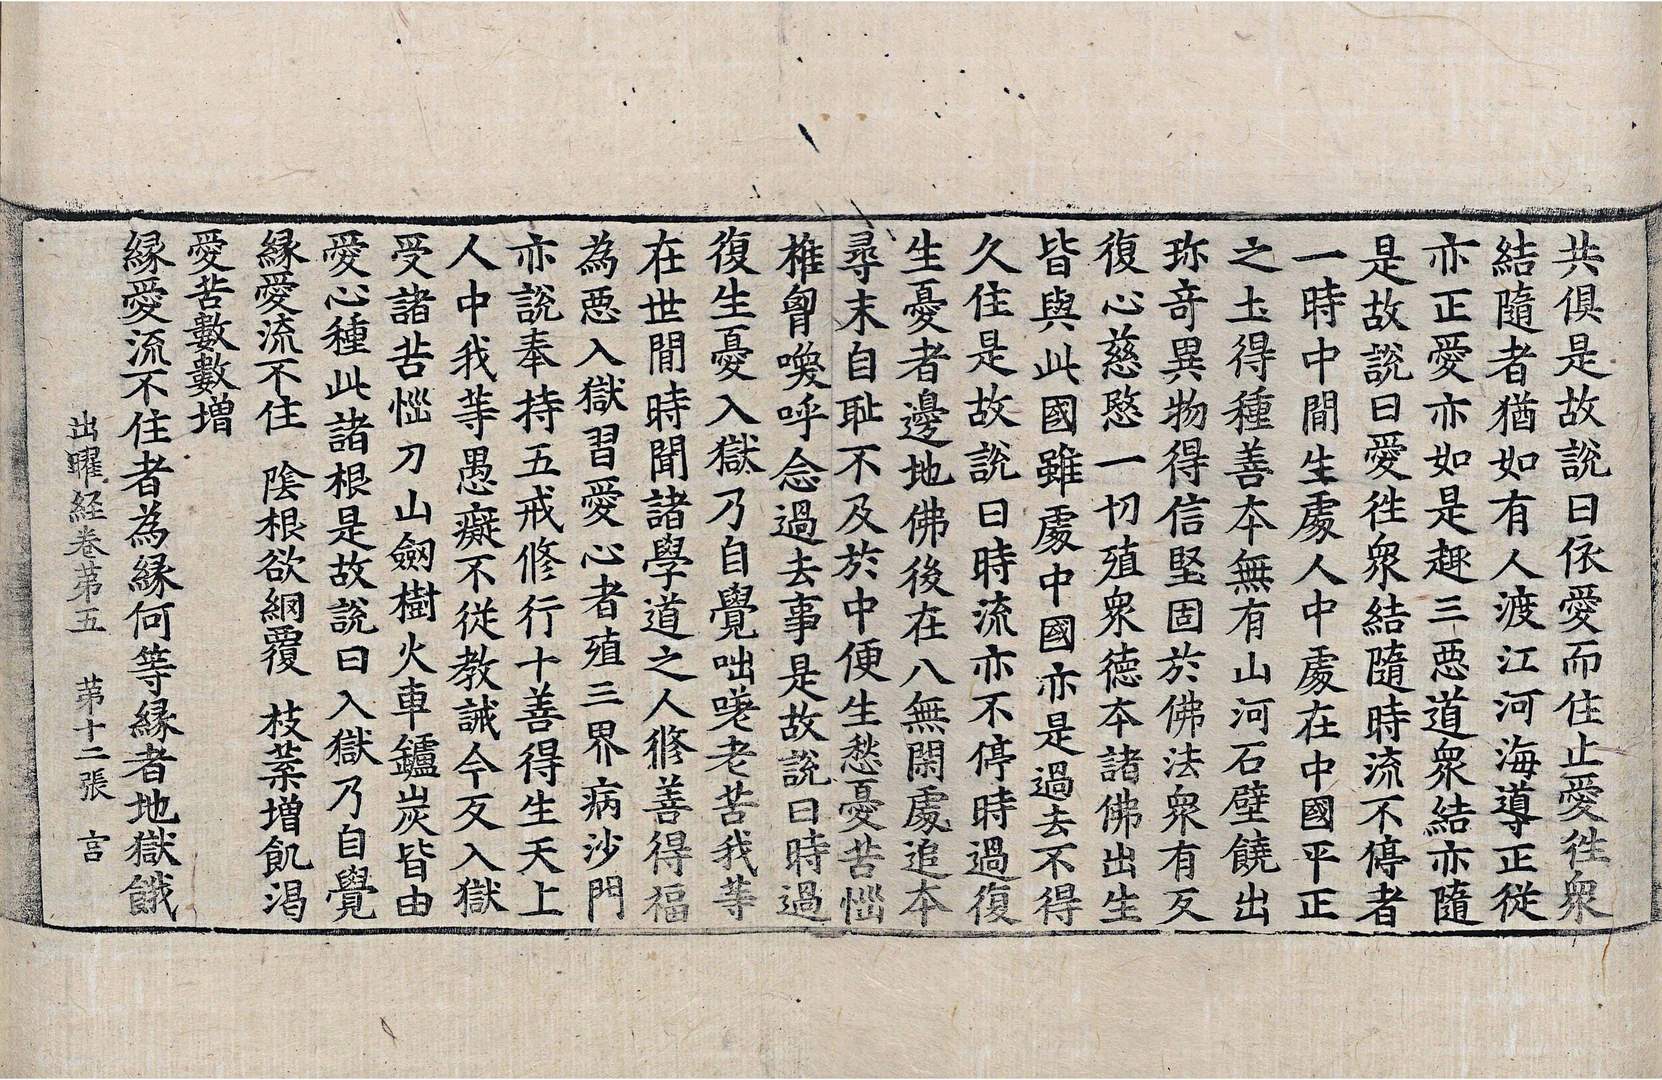 共俱是故說曰依愛而住止愛徃衆
結隨者猶如有人渡江河海導正從
亦正愛亦如是趣三惡道衆結亦隨
是故說曰愛徃衆結隨時流不停者
一時中間生處人中處在中國平正
之土得種善本無有山河石壁饒出
珎竒異物得信堅固於佛法衆有反
復心慈愍一切殖衆德本諸佛出生
皆與此國雖處中國亦是過去不得
久住是故說曰時流亦不停時過復
生憂者邊地佛後在八無閑處追本
尋末自耻不及於中便生愁憂苦惱
椎胷喚呼念過去事是故說曰時過
復生憂入獄乃自覺咄嗟老苦我等
在世間時聞諸學道之人修善得福
為惡入獄習愛心者殖三界病沙門
亦說奉持五戒修行十善得生天上
人中我等愚癡不從教誡今反入獄
受諸苦惱刀山劒樹火車鑪炭皆由
愛心種此諸根是故說曰入獄乃自覺
緣愛流不住 陰根欲網覆 枝葉增飢渴
愛苦數數增
緣愛流不住者為緣何等緣者地獄餓
出曜経卷苐五 苐十二張 言